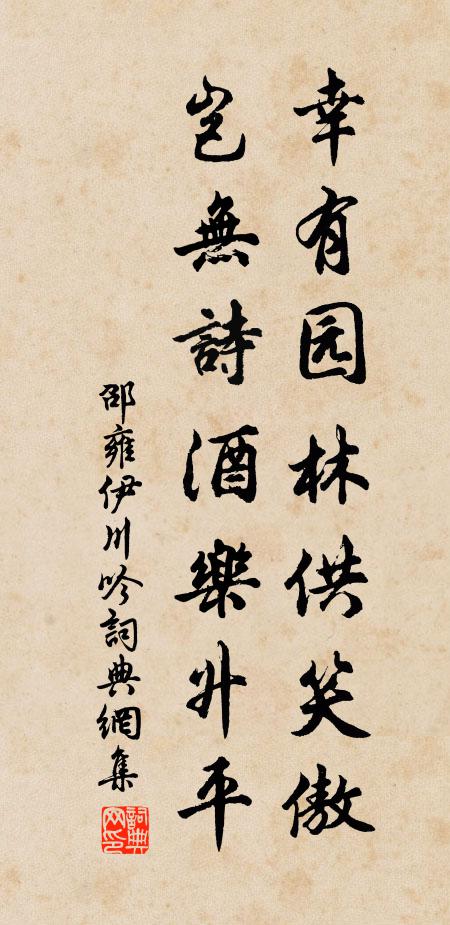 幸有园林供笑傲
岂無詩酒樂升平
邵雍伊川吟詞典網集
詞典网印